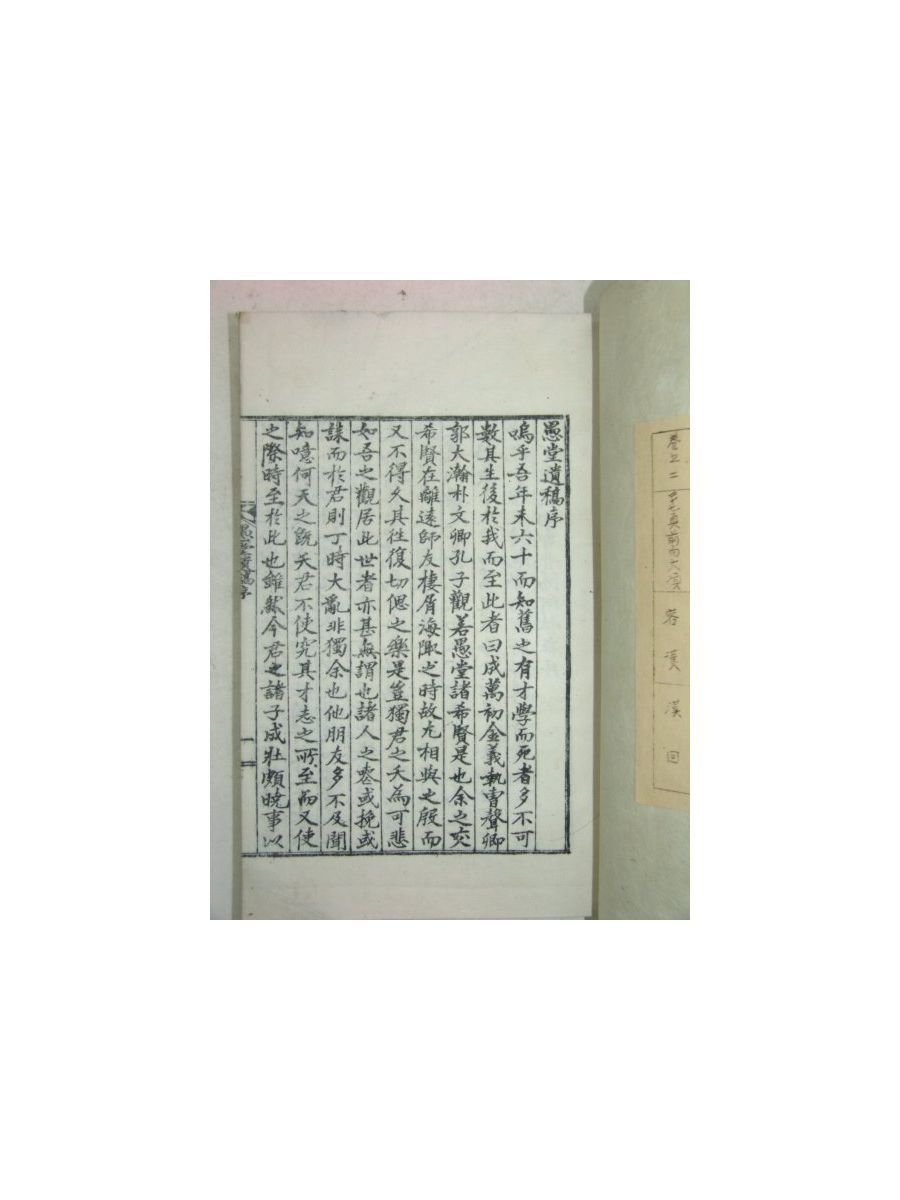 愚堂遺稿序
嗚乎吾年未六十而知舊之有才學而死者多不可
數其生後於我而至此者曰成萬初金義執曺聲卿
郭大瀚朴文卿孔子觀若愚堂諸希賢是也余之交
希賢在離遠師友棲屑海陬之時故尤相與之殷而
又不得久其徃復切偲之樂是豈獨君之夭為可悲
如吾之觀居此世者亦甚無謂也諸人之葬或挽或
誄而於君則丁時大亂非獨余也他朋友多不及聞
知噫何天之旣夭君不使究其才志之所至而又使
之際時至於此也雖然今君之諸子成壯頗晓事以
愚堂遺稿序